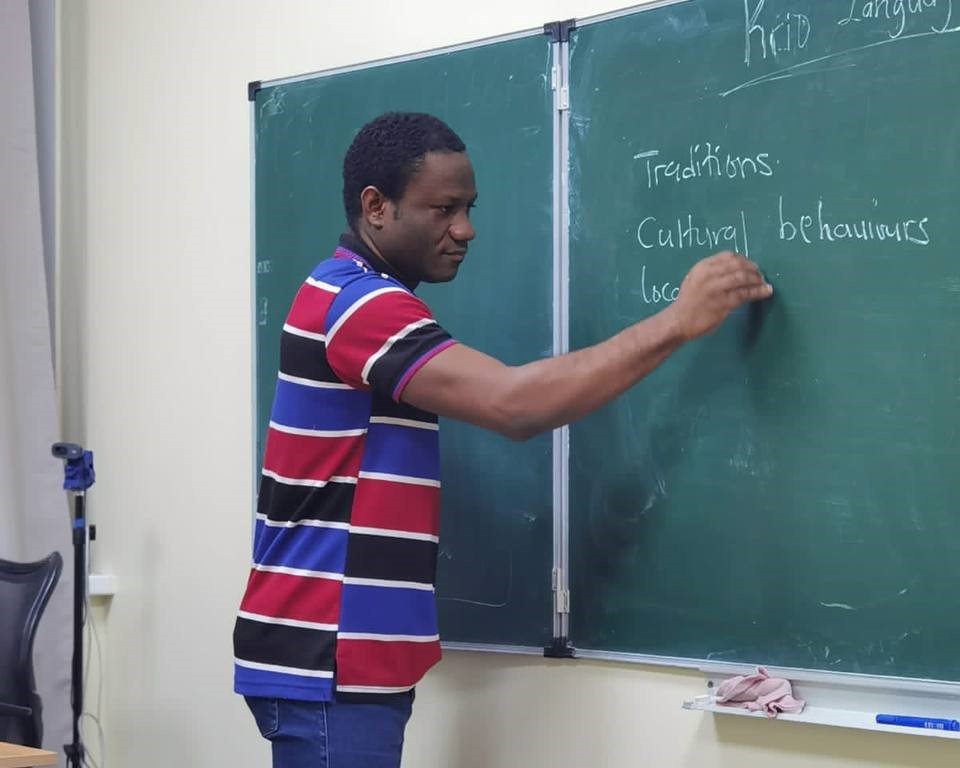 Krio Languag
Traditions.
Cultural behaviours
loca